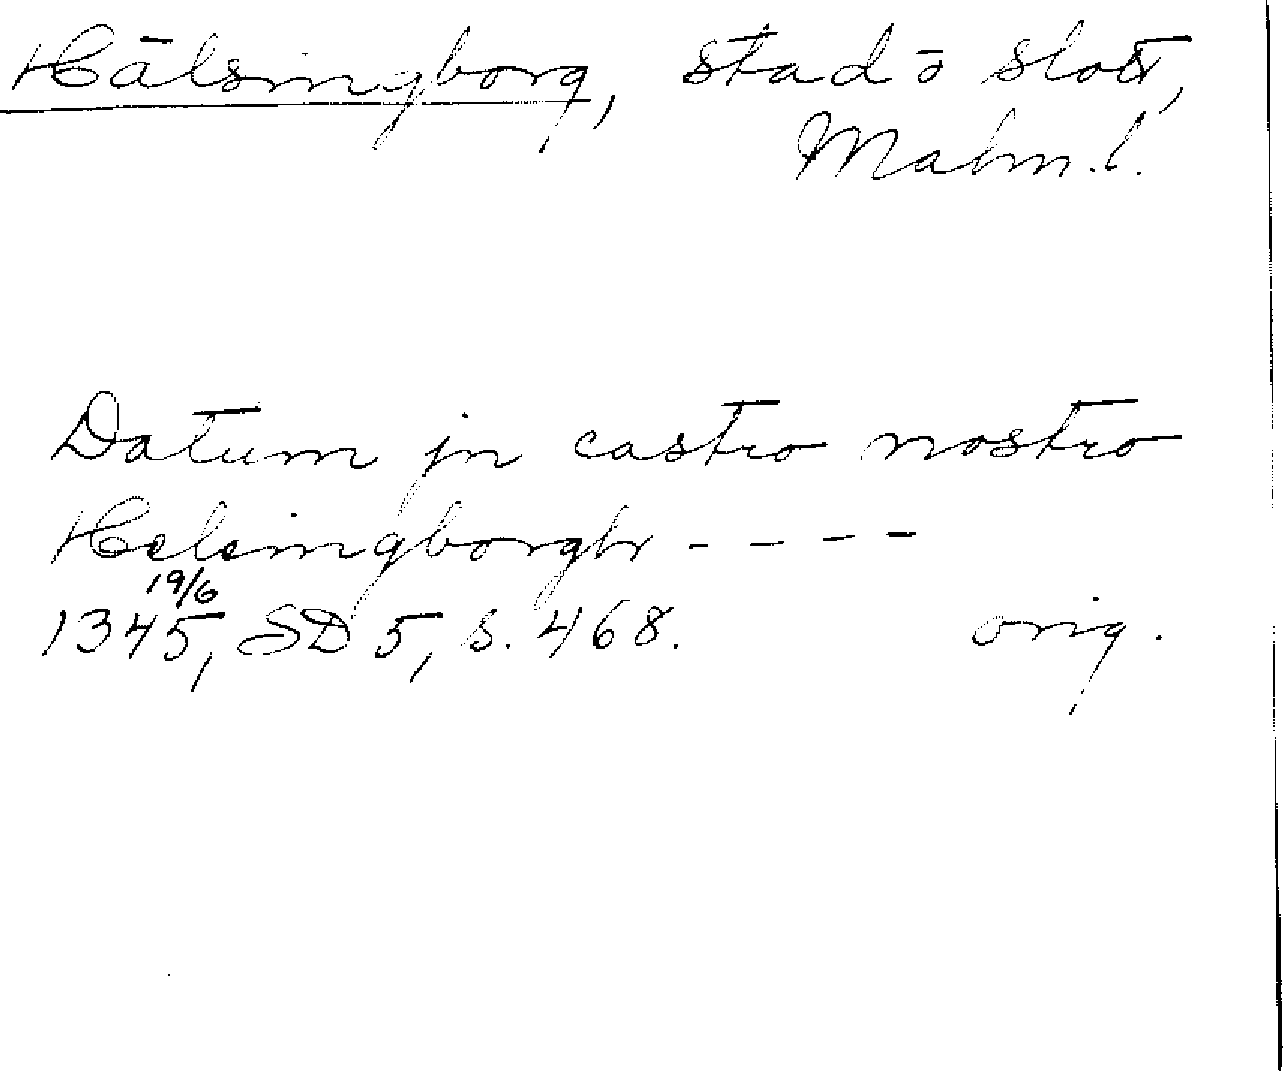 Hälsingborg, stad o slott,
Malm. l.
Datum jn castro nostro
Helsingborgh - - - -
19/6
1345, SD 5, s. 468. orig.